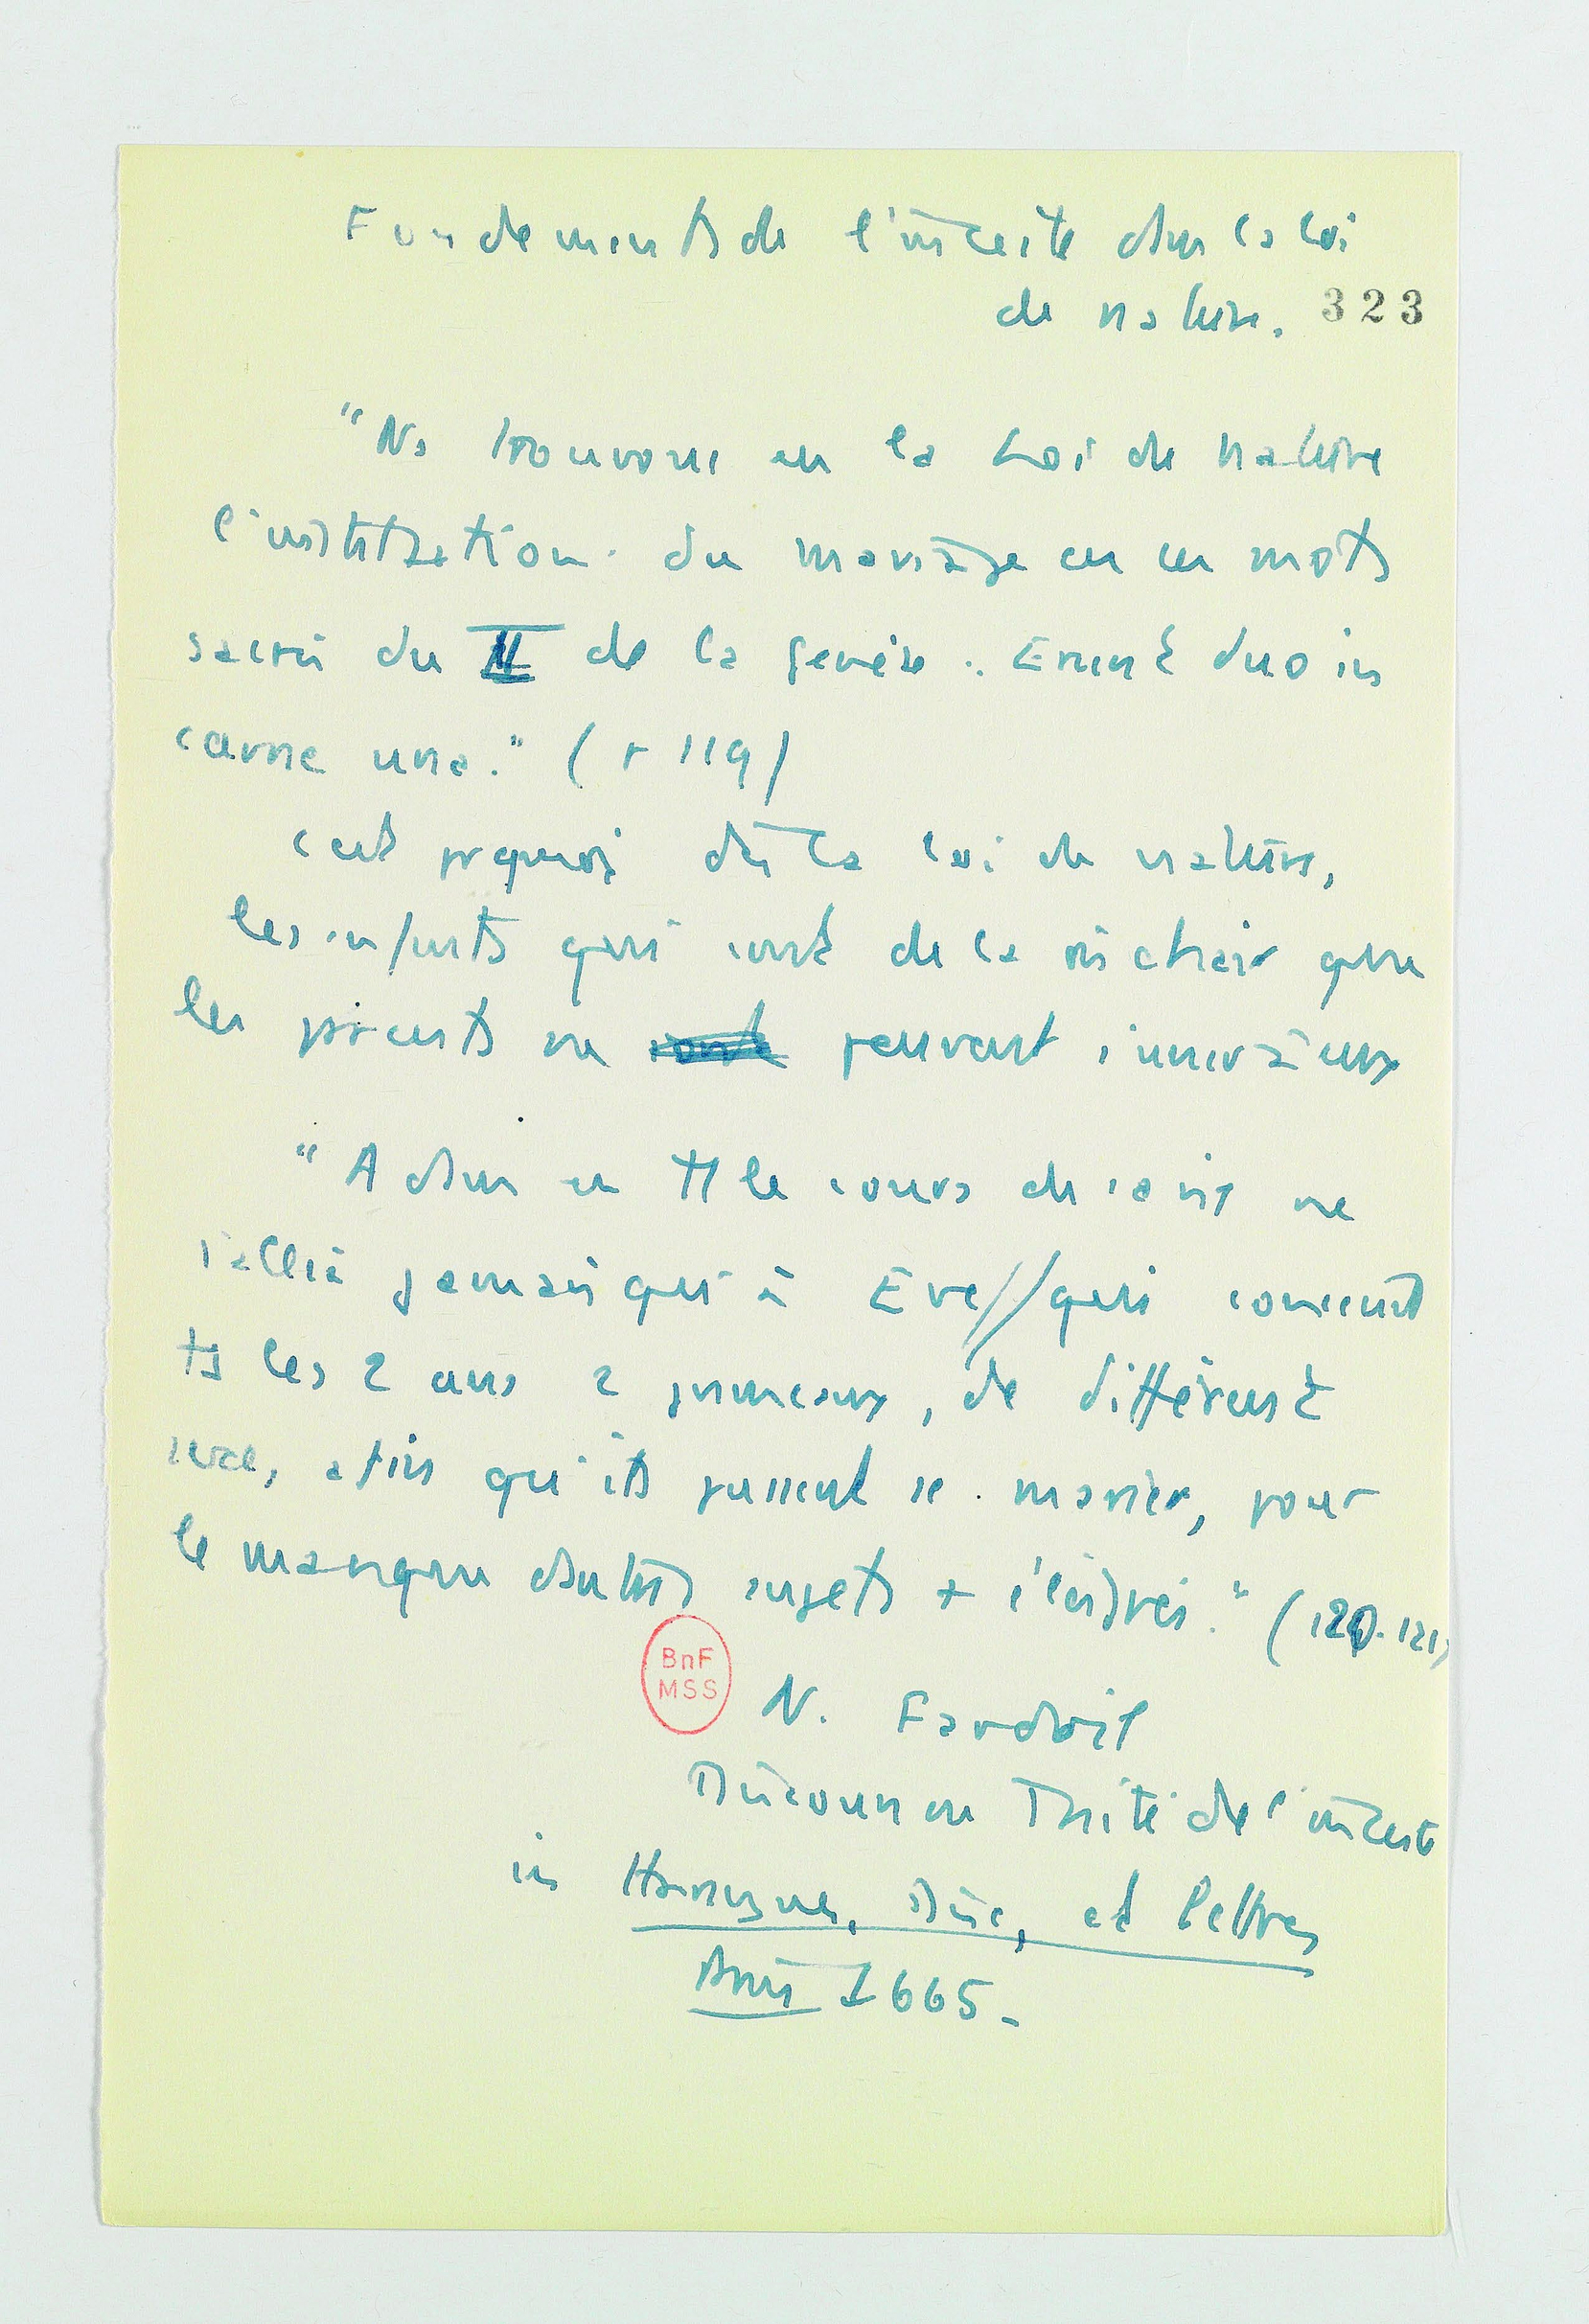 Fondements de l'inceste dans la loi
de nature. 323
"Ns trouvons en la Loi de nature
l'institution du mariage en ces mots
sacrés du II de la genèse : Erunt duo in
carne una." (p 119)
c'est pquoi ds la loi de nature,
les enfants qui sont de la m chair que
les parents ne sont peuvent s'unir à eux
"Adam en tt le cours de sa vie ne
s'allia jamais qu'à Eve // qui concevait
ts les 2 ans 2 jumeaux, de différent
sexe, afin qu'ils pussent se marier, pour
le manque d'autres sujets + éloignés." (120-121)
BnF
MSS
N. Fardoil
Discours ou Traité de l'inceste
in Harangues, Disc, et lettres
Paris 1665.